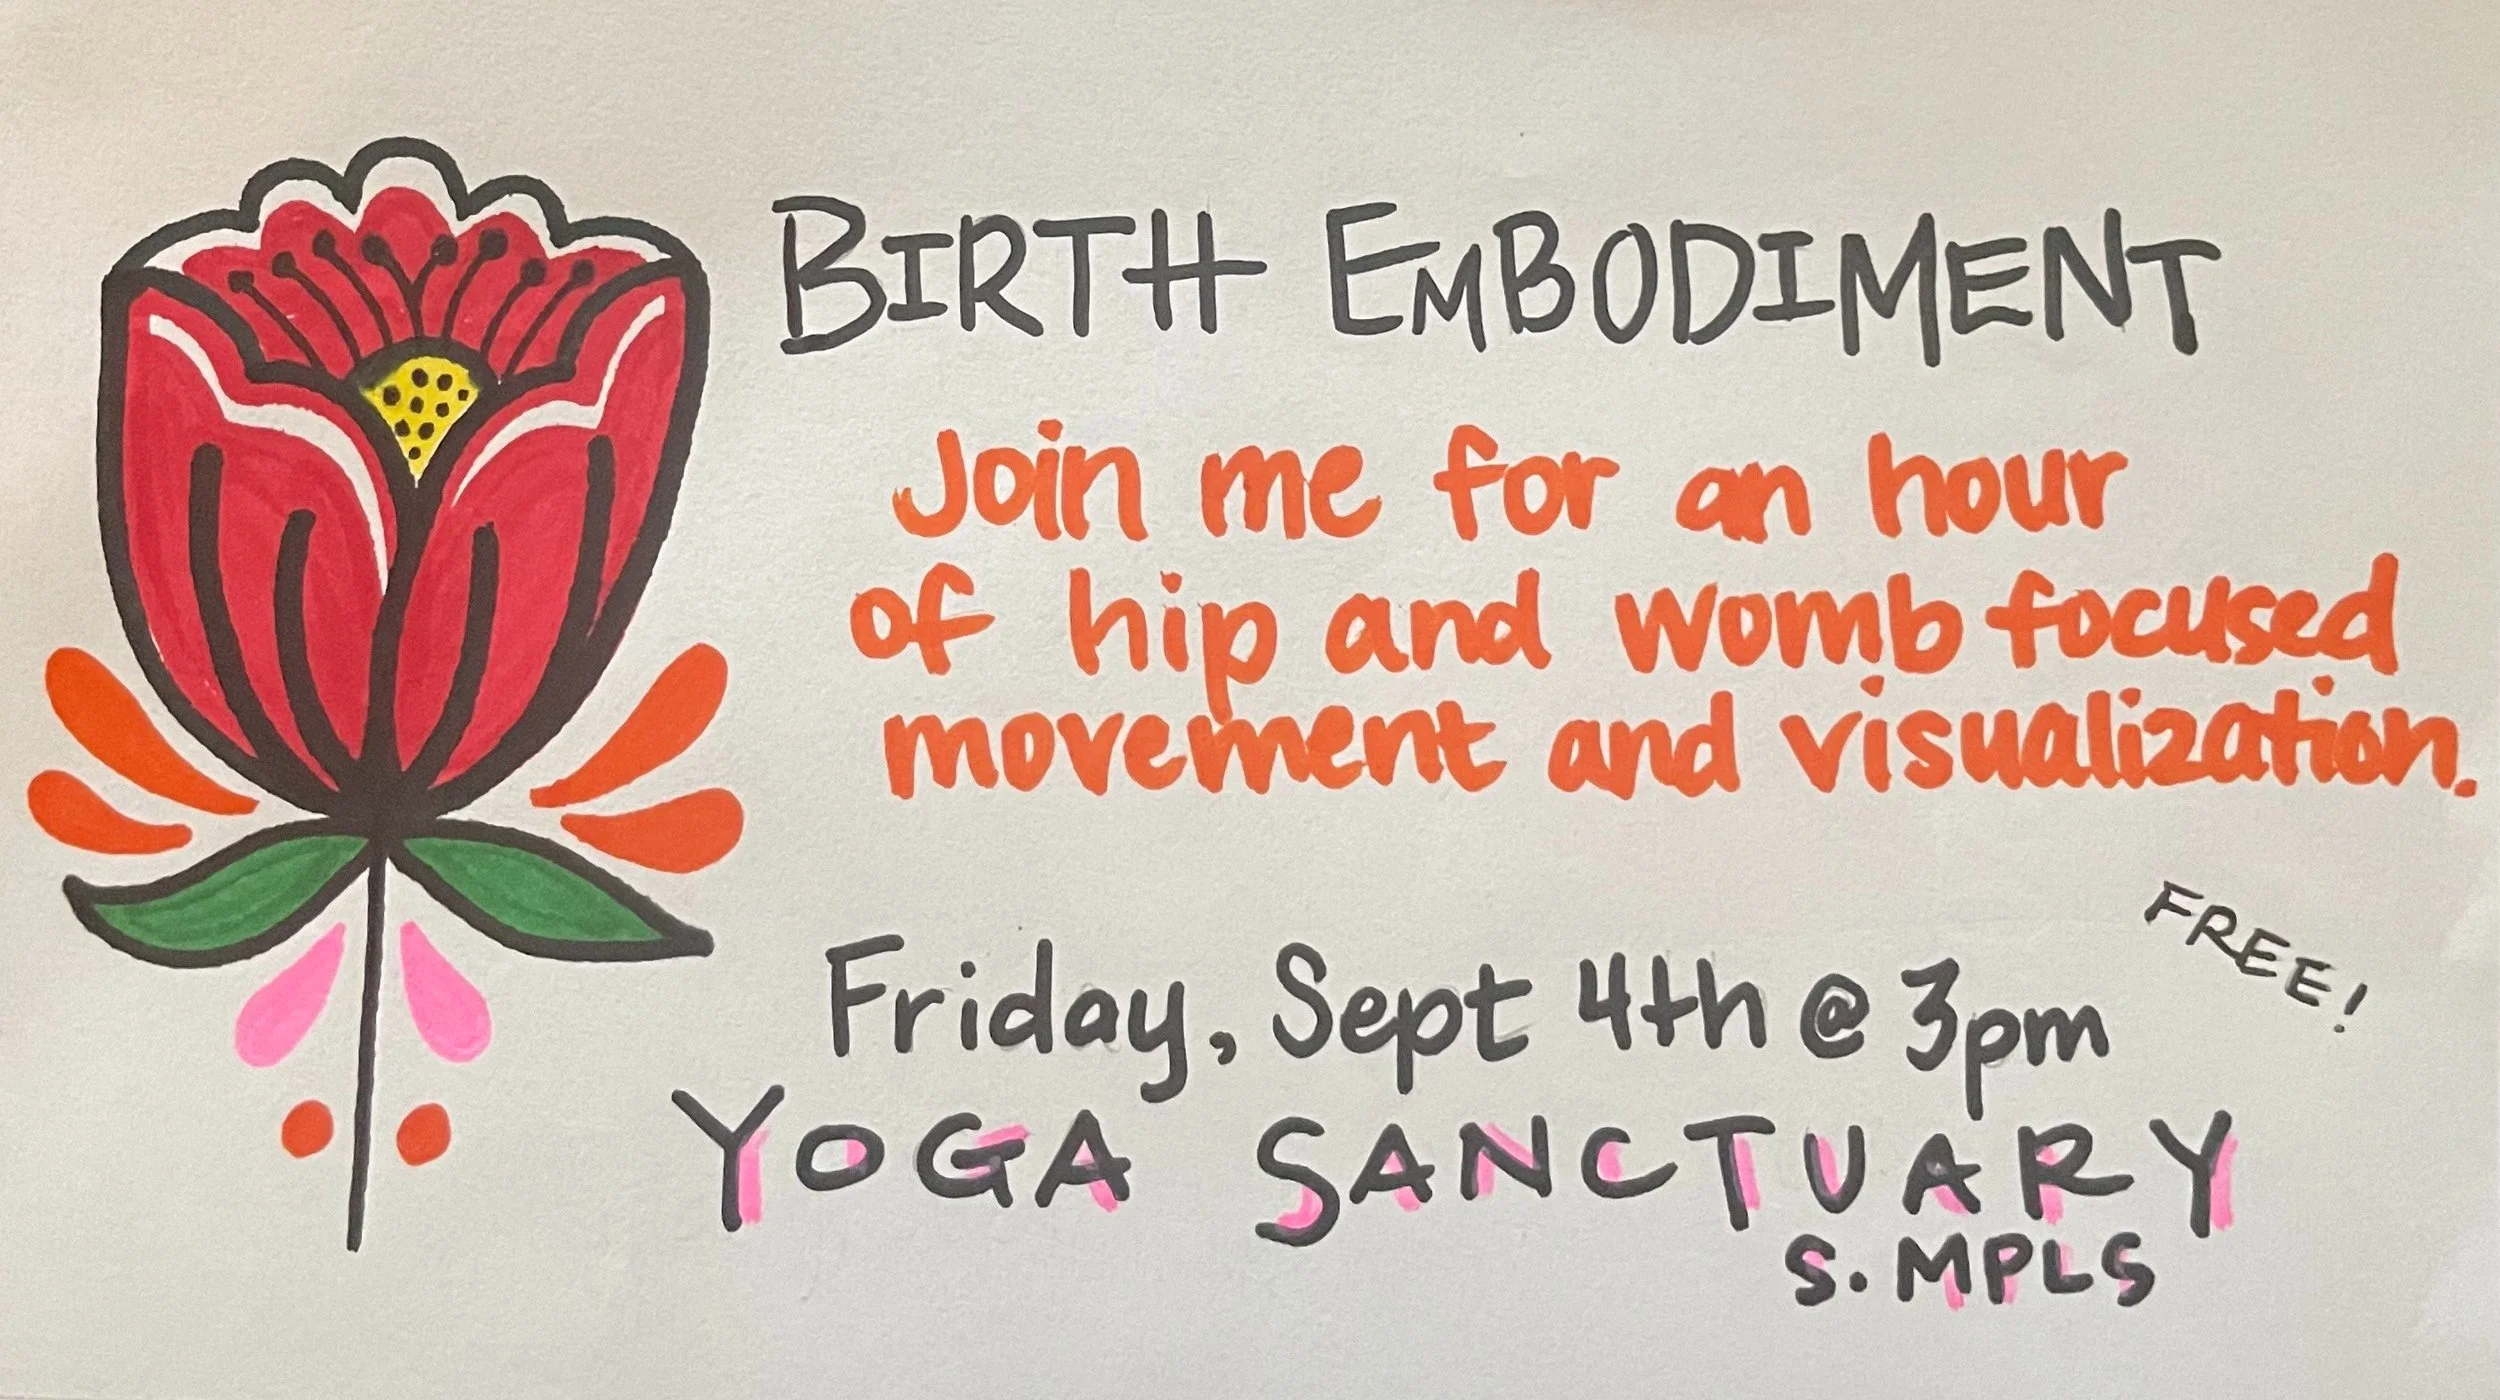 BIRTH EMBODIMENT
Join me for an hour
of hip and womb focused
movement and visualization.
FREE!
Friday, Sept 4th @ 3pm
YOGA SANCTUARY
S. MPLS